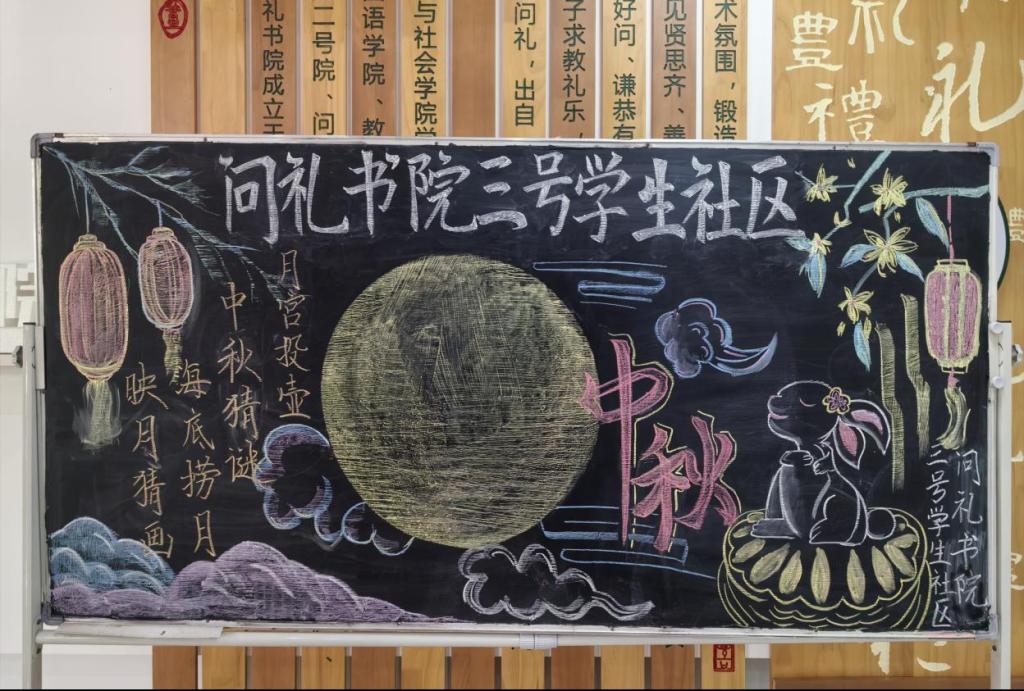 礼书院成立于
二号院、问
语学院、教
与社会学院学
问礼，出自
子求教礼乐，
好问、谦恭有
见贤思齐、善
术氛围，锻造
豐
礼
禮
礼
问礼书院三号学生社区
月宫投壶
中秋猜谜
海底捞月
映月猜画
中秋
问礼书院
三号学生社区